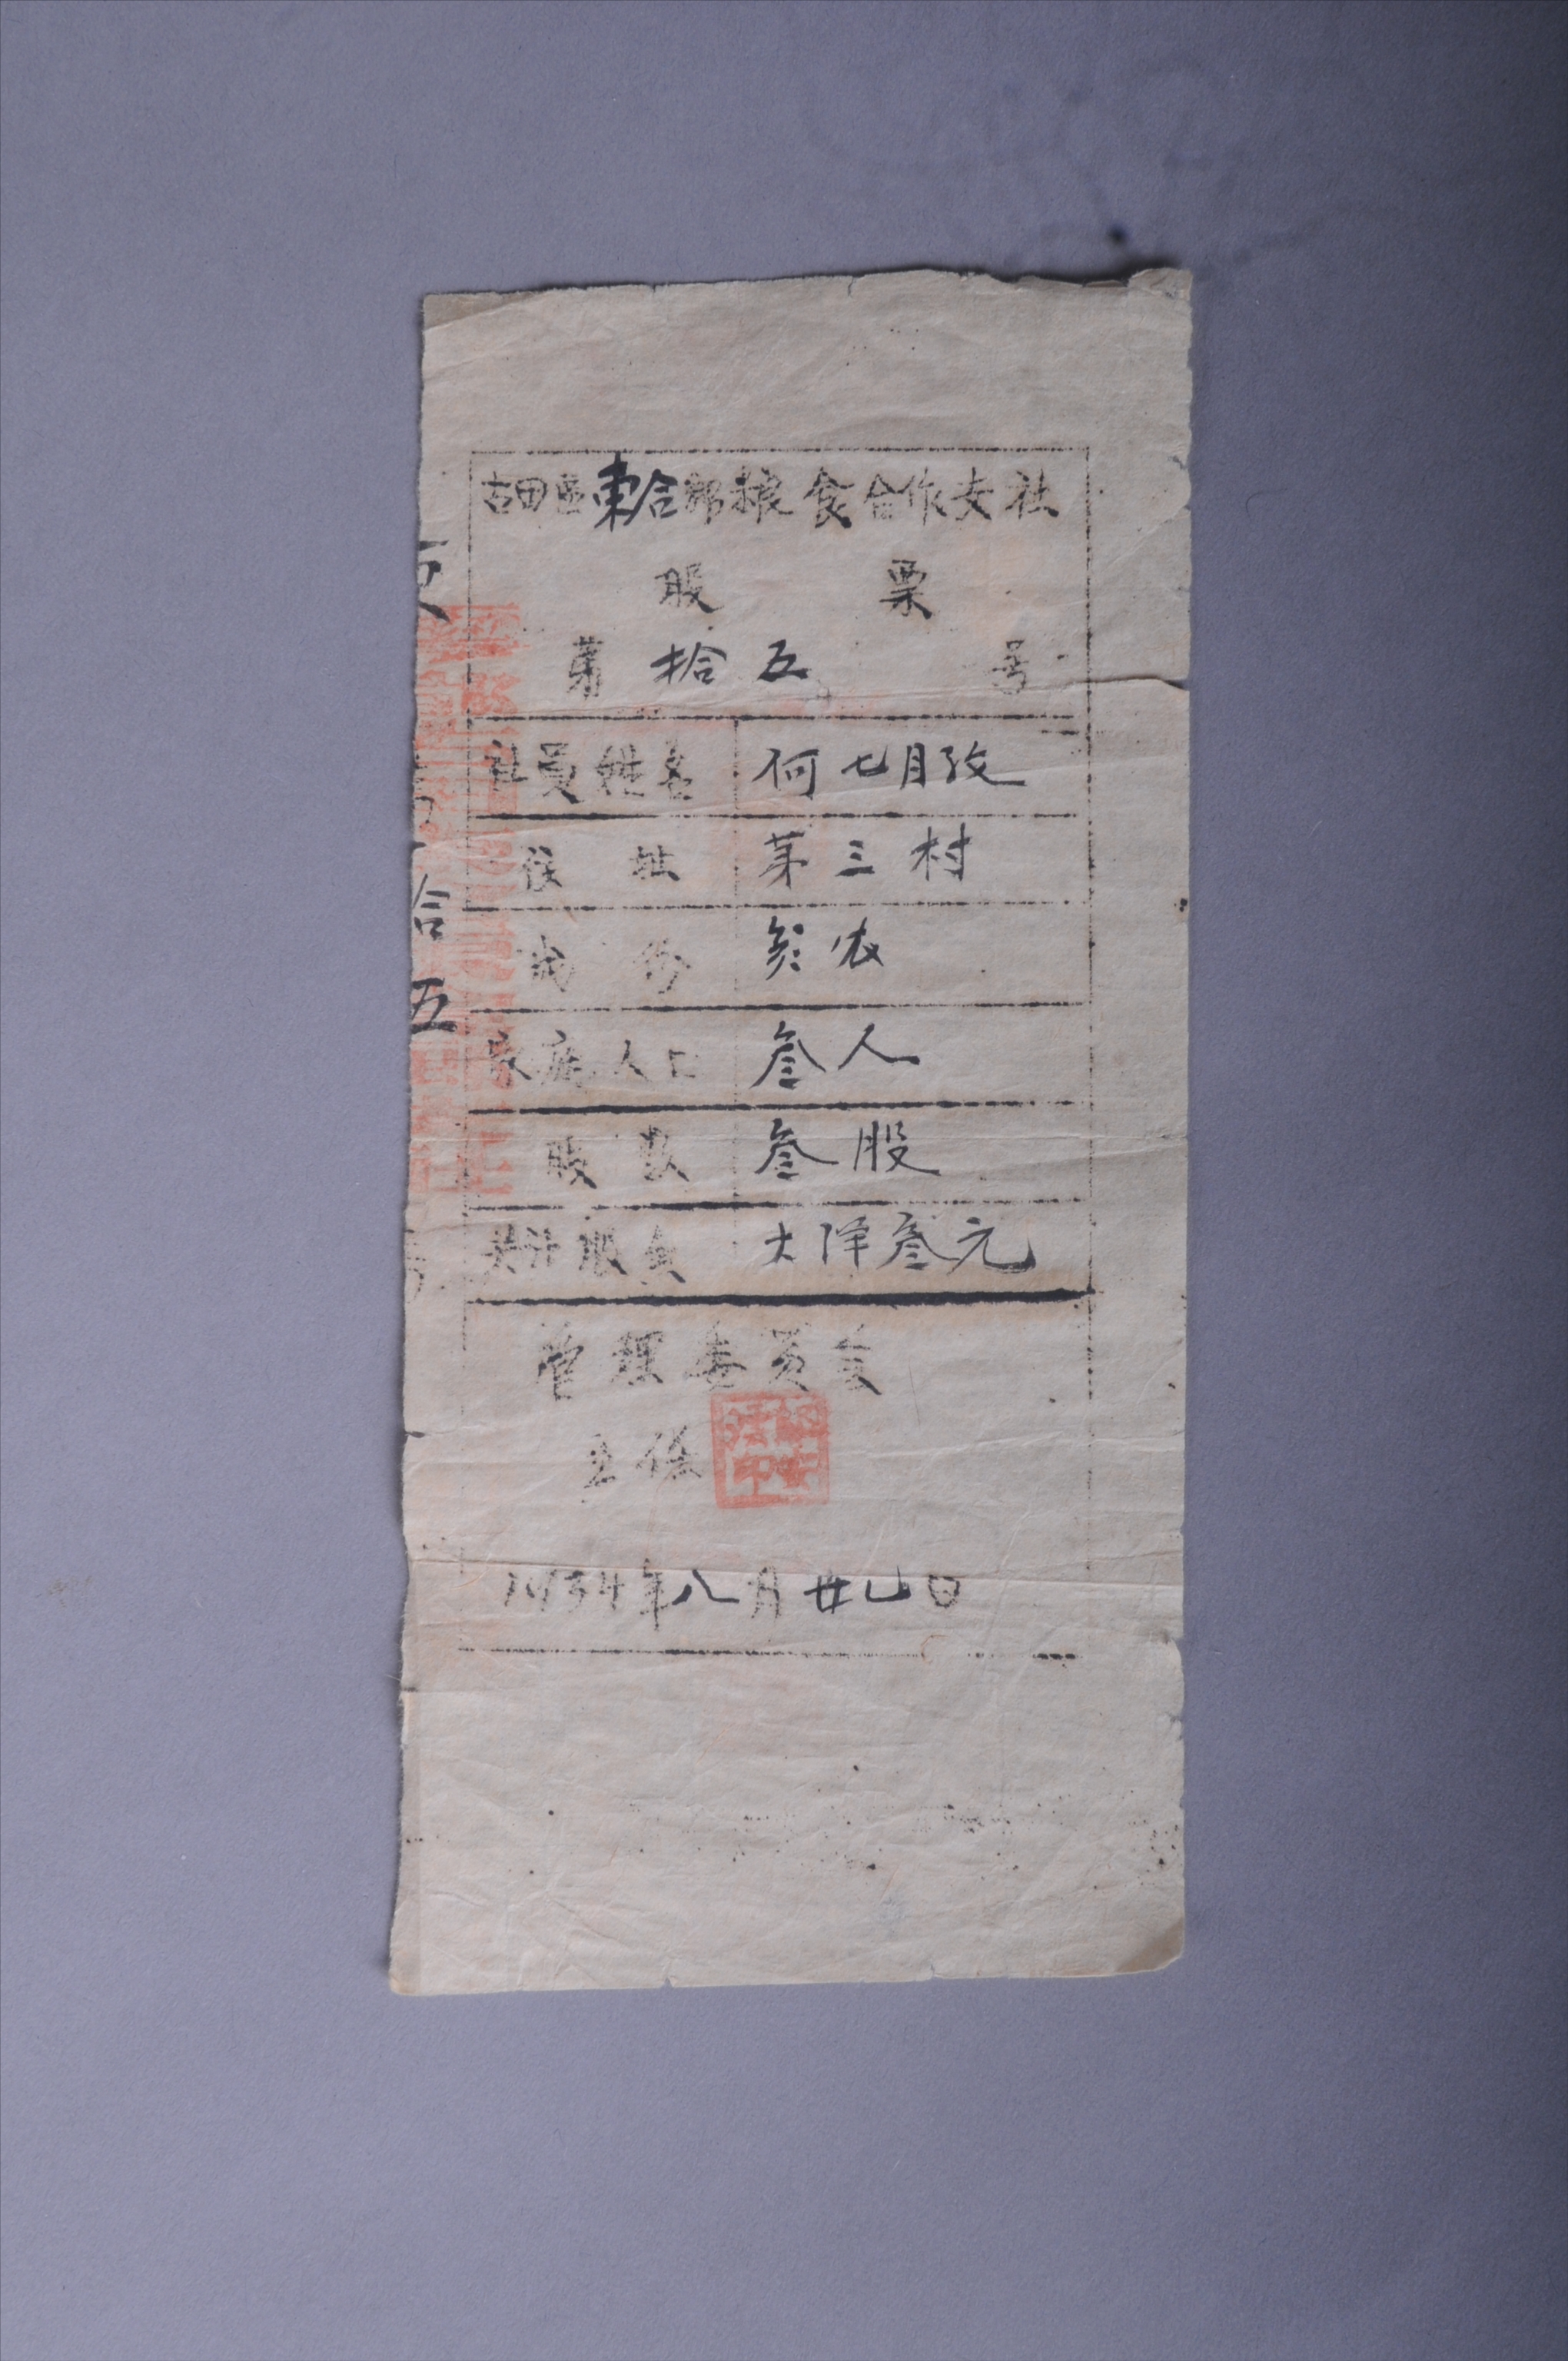 古田區東合鄉粮食合作支社
股 票
第 拾 五 号
社員姓名 何七月孜
住 址 第三村
成 份 貧农
家庭人口 叁人
股 数 叁股
共計股金 大洋叁元
管理委員会
主任
1934年八月廿乚日
合
五